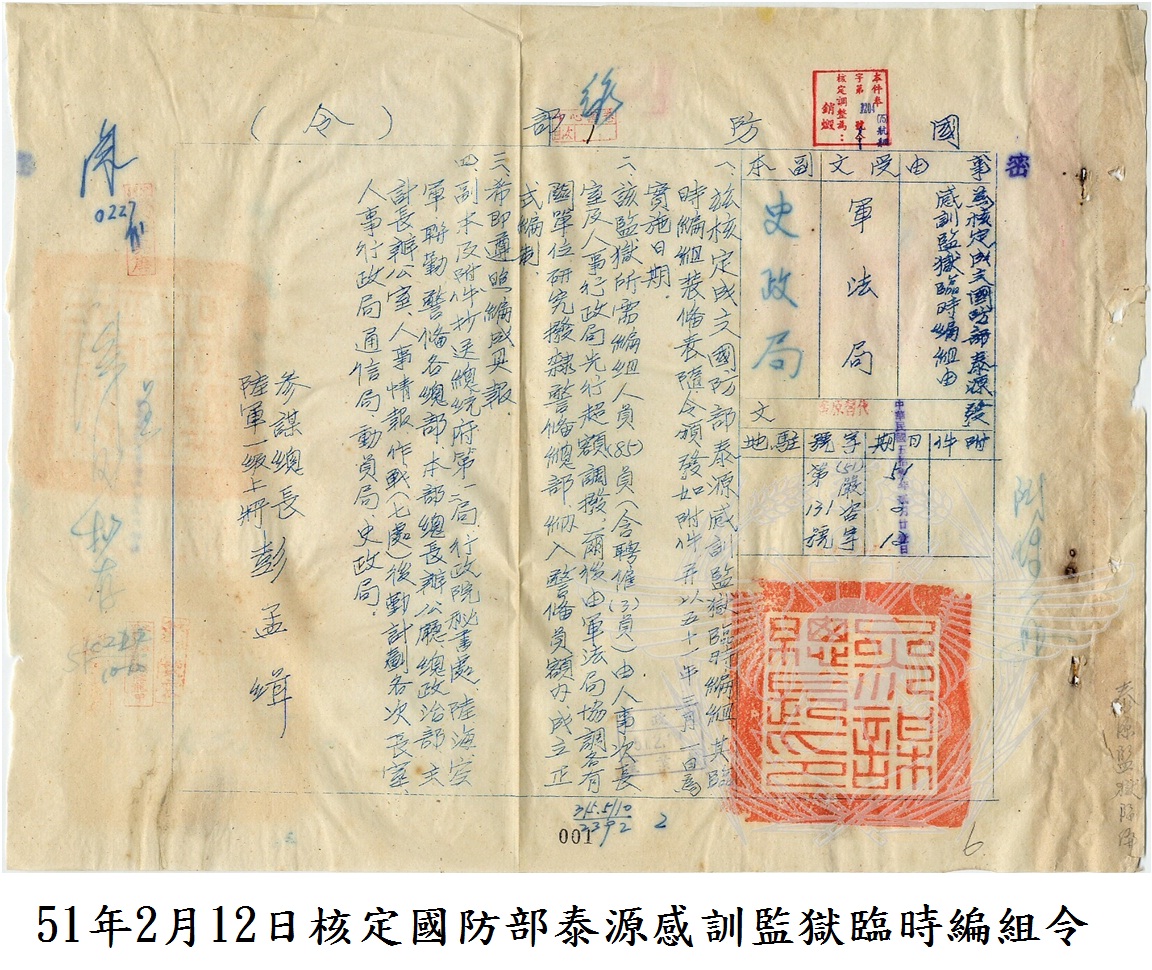 密
國防部(令)
事由
為核定成立國防部泰源
感訓監獄臨時編組由
受文
軍法局
副本
史政局
發文
附件
日期
字號
駐地
51
2
12
(51)嚴容字
第131號
一、茲核定成立國防部泰源感訓監獄臨時編組其臨
時編組裝備表隨令頒發如附件并以五十一年三月一日為
實施日期。
二、該監獄所需編組人員(85)員(含聘僱(3)員)由人事次長
室及人事行政局先行超額調撥,爾後由軍法局協調各有
關單位研究撥隸警備總部,納入警備員額內,成立正
式編制。
三、希即遵照編成具報
四、副本及附件抄送總統府第二局、行政院秘書處、陸海空
軍聯勤警備各總部本部總長辦公廳總政治部主
計長辦公室、人事情報作戰(七處)後勤計劃各次長室、
人事行政局通信局動員局、史政局。
參謀總長
陸軍一級上將彭孟緝
0227
001
6
51年2月12日核定國防部泰源感訓監獄臨時編組令